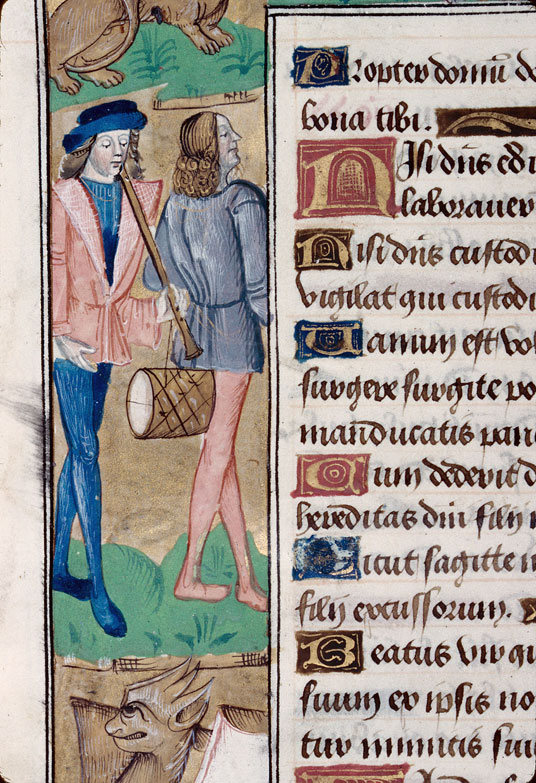 Propter domū do
bona tibi.
Nisi dn̄s edi
laborauer
Nisi dn̄s custodi
vigilat qui custodi
Uanum est vo
surgere surgite po
manducatis pan
Cum dederit d
hereditas dn̄i filij
Sicut sagitte in
filij excussorum.
Beatus vir qui
suum ex ipsis no
tur inimicis sui